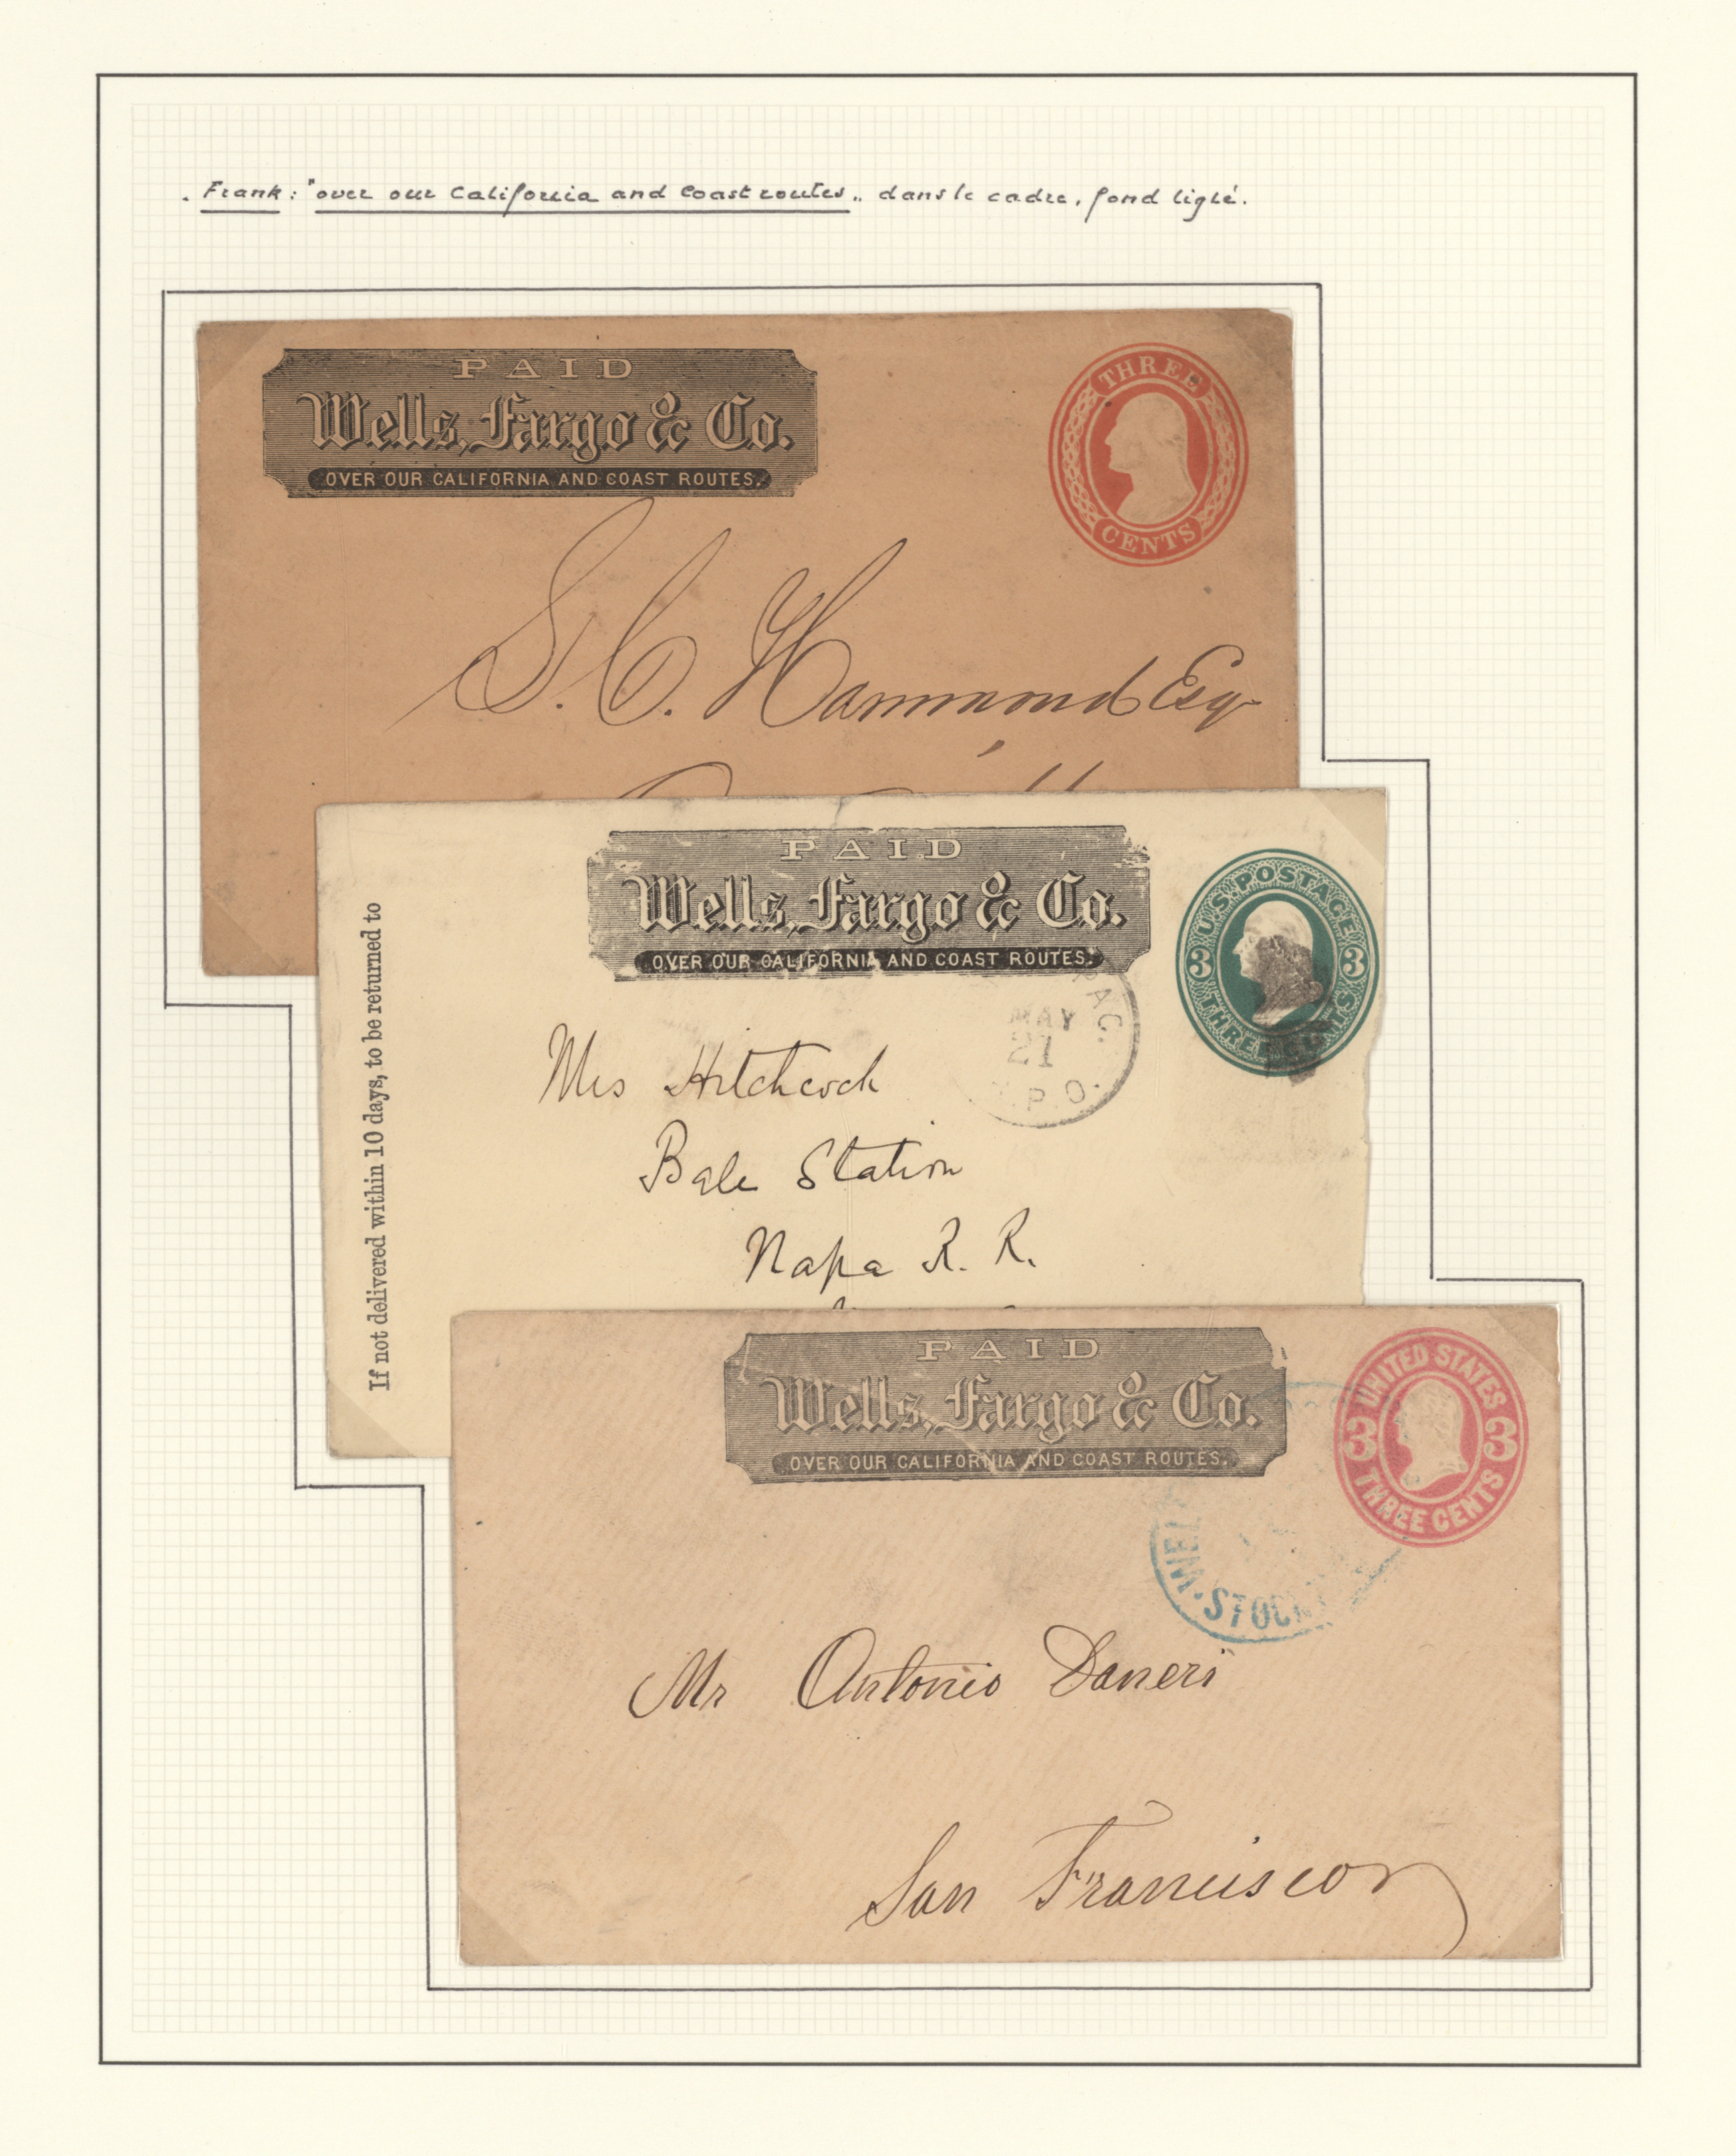 . Frank : "over our California and Coast routes„ dans le cadre, fond ligné.
PAID
Wells, Fargo & Co.
OVER OUR CALIFORNIA AND COAST ROUTES.
THREE
CENTS
S. C. Hammond Esq
PAID
Wells, Fargo & Co.
OVER OUR CALIFORNIA AND COAST ROUTES.
U.S. POSTAGE
3 3
THREE CENTS
If not delivered within 10 days, to be returned to
PAC.
MAY
21
P.O.
Mrs Hitchcock
Bale Station
Napa R. R.
PAID
Wells, Fargo & Co.
OVER OUR CALIFORNIA AND COAST ROUTES.
UNITED STATES
3 3
THREE CENTS
Mr Antonio Daneri
San Francisco